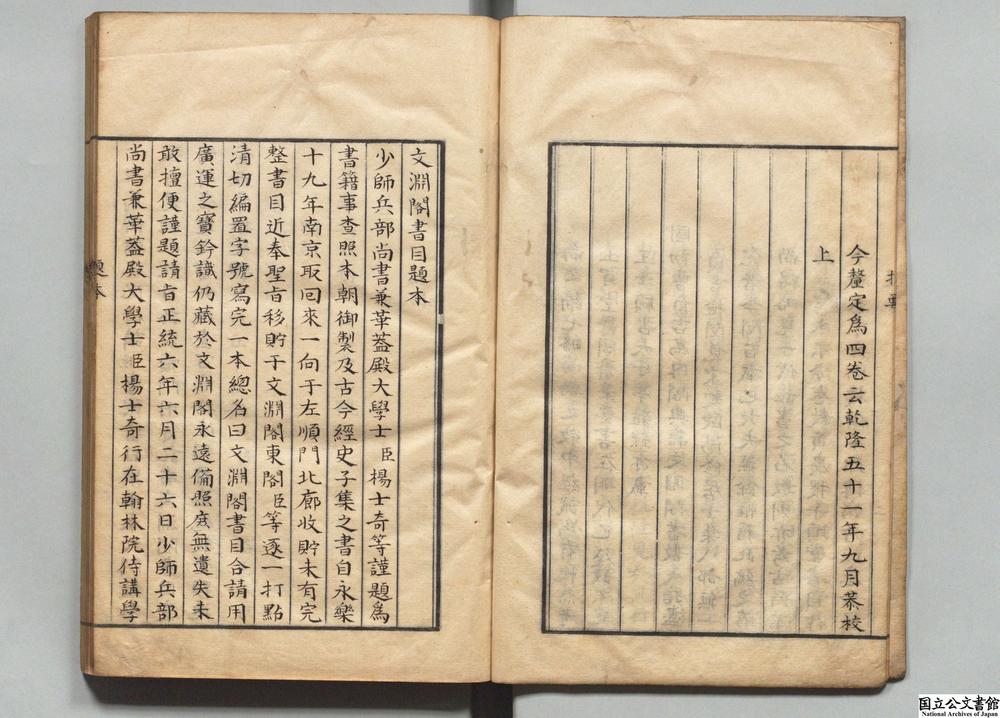 今釐定爲四卷云乾隆五十一年九月恭校
上
文淵閣書目題本
少師兵部尚書兼華葢殿大學士臣楊士奇等謹題爲
書籍事查照本朝御製及古今經史子集之書自永樂
十九年南京取回來一向于左順門北廊收貯未有完
整書目近奉聖旨移貯于文淵閣東閣臣等逐一打點
清切編置字號寫完一本總名曰文淵閣書目合請用
廣運之寶鈐識仍藏於文淵閣永遠備照庶無遺失未
敢擅便謹題請旨正統六年六月二十六日少師兵部
尚書兼華葢殿大學士臣楊士奇行在翰林院侍講學
題本
国立公文書館
National Archives of Japan